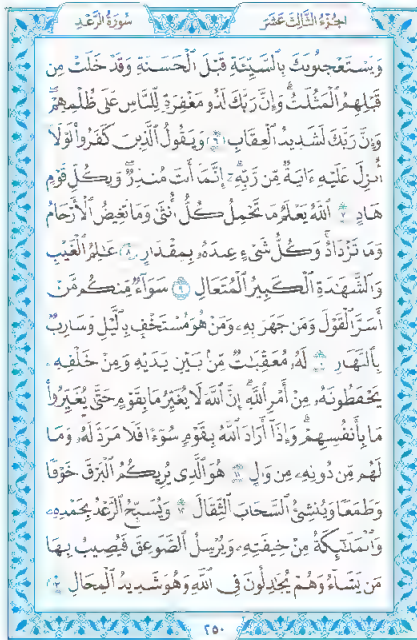 سُورَةُ الرَّعْدِ
الجُزْءُ الثَّالِثَ عَشَرَ
وَيَسْتَعْجِلُونَكَ بِالسَّيِّئَةِ قَبْلَ الْحَسَنَةِ وَقَدْ خَلَتْ مِن
قَبْلِهِمُ الْمَثُلَاتُ ۗ وَإِنَّ رَبَّكَ لَذُو مَغْفِرَةٍ لِّلنَّاسِ عَلَىٰ ظُلْمِهِمْ ۖ
وَإِنَّ رَبَّكَ لَشَدِيدُ الْعِقَابِ ٦ وَيَقُولُ الَّذِينَ كَفَرُوا لَوْلَا
أُنزِلَ عَلَيْهِ ءَايَةٌ مِّن رَّبِّهِ ۗ إِنَّمَا أَنتَ مُنذِرٌ ۖ وَلِكُلِّ قَوْمٍ
هَادٍ ٧ اللَّهُ يَعْلَمُ مَا تَحْمِلُ كُلُّ أُنثَىٰ وَمَا تَغِيضُ الْأَرْحَامُ
وَمَا تَزْدَادُ ۖ وَكُلُّ شَيْءٍ عِندَهُ بِمِقْدَارٍ ٨ عَالِمُ الْغَيْبِ
وَالشَّهَادَةِ الْكَبِيرُ الْمُتَعَالِ ٩ سَوَاءٌ مِّنكُم مَّنْ
أَسَرَّ الْقَوْلَ وَمَن جَهَرَ بِهِ وَمَنْ هُوَ مُسْتَخْفٍ بِاللَّيْلِ وَسَارِبٌ
بِالنَّهَارِ ١٠ لَهُ مُعَقِّبَاتٌ مِّن بَيْنِ يَدَيْهِ وَمِنْ خَلْفِهِ
يَحْفَظُونَهُ مِنْ أَمْرِ اللَّهِ ۗ إِنَّ اللَّهَ لَا يُغَيِّرُ مَا بِقَوْمٍ حَتَّىٰ يُغَيِّرُوا
مَا بِأَنفُسِهِمْ ۗ وَإِذَا أَرَادَ اللَّهُ بِقَوْمٍ سُوءًا فَلَا مَرَدَّ لَهُ ۚ وَمَا
لَهُم مِّن دُونِهِ مِن وَالٍ ١١ هُوَ الَّذِي يُرِيكُمُ الْبَرْقَ خَوْفًا
وَطَمَعًا وَيُنشِئُ السَّحَابَ الثِّقَالَ ١٢ وَيُسَبِّحُ الرَّعْدُ بِحَمْدِهِ
وَالْمَلَائِكَةُ مِنْ خِيفَتِهِ وَيُرْسِلُ الصَّوَاعِقَ فَيُصِيبُ بِهَا
مَن يَشَاءُ وَهُمْ يُجَادِلُونَ فِي اللَّهِ وَهُوَ شَدِيدُ الْمِحَالِ ١٣
٢٥٠